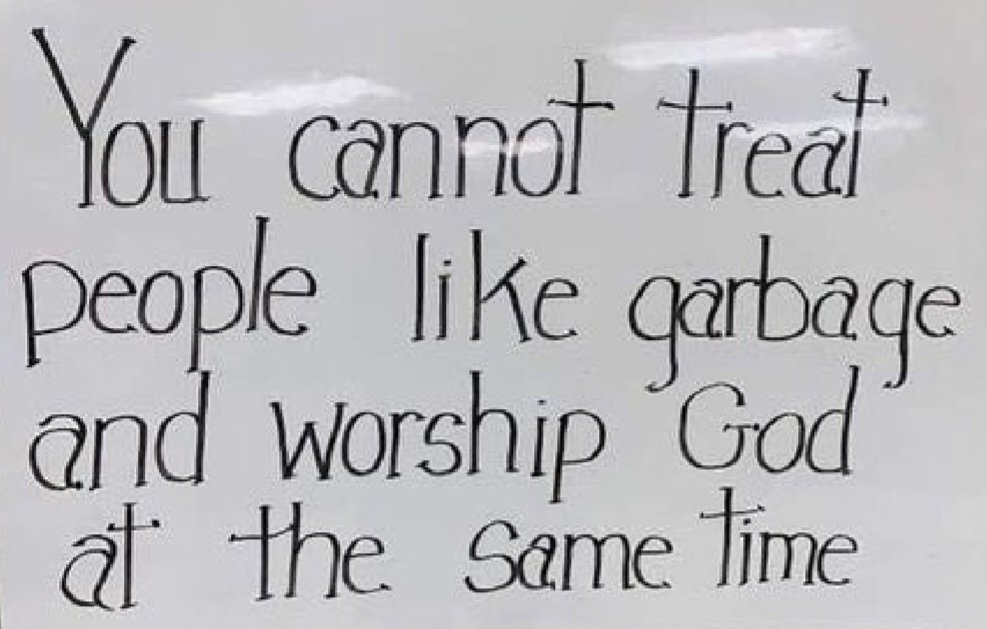 You cannot treat
people like garbage
and worship God
at the same time